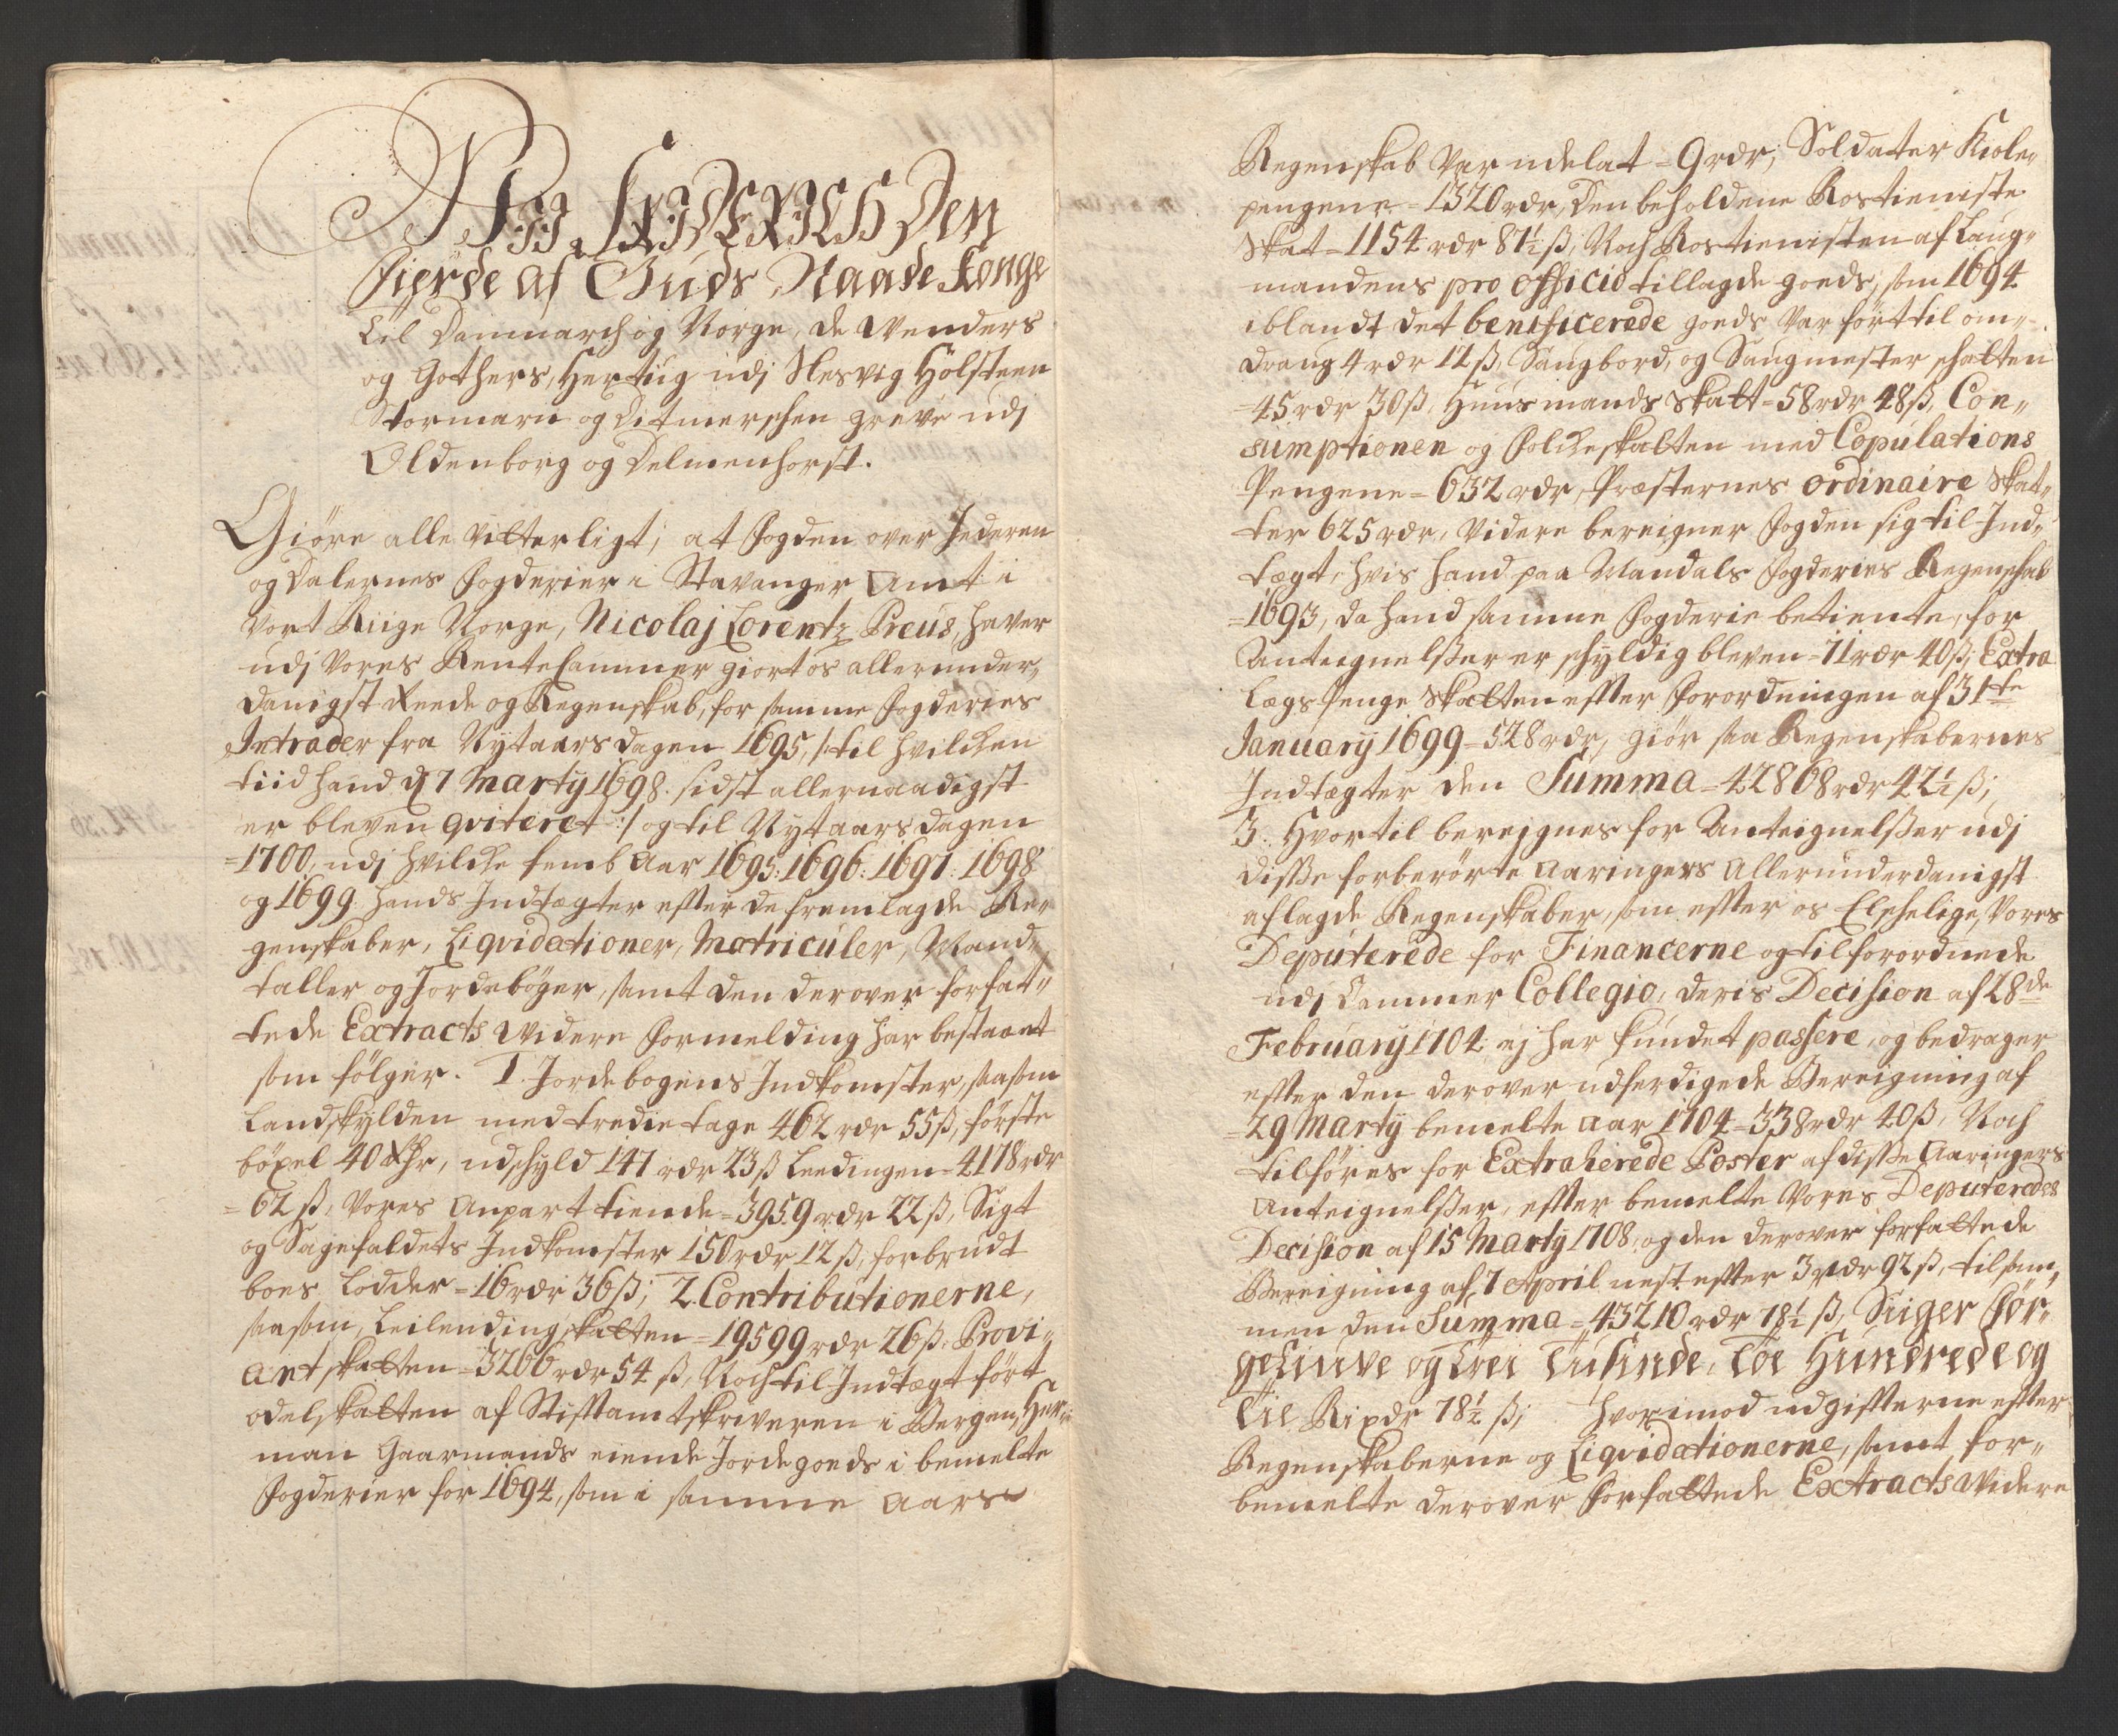 Wii Friderich Den
Fierde af Guds Naade Konge
til Danmarch og Norge, de Wenders
og Gothers, Hertug udj Slesvig Holsteen
Stormarn og Ditmerschen greve udj
Oldenborg og Delmenhorst.
Giöre alle vitterligt, at Fogden over Jederen
og Dalernes Fogderier i Stavanger Amt i
Vort Riige Norge, Nicolaj Lorentz Preus, haver
udj Vores Rente Cammer giort os allerunder„
danigst Reede og Regenskab, for samme Fogderies
Intrader fra Nytaarsdagen 1695, /: til hvilchen
tiid hand d 7 Marty 1698. sidst allernaadigst
er bleven qviteret :/ og til Nytaarsdagen
=1700, udj hvilche femb Aar 1695: 1696: 1697: 1698
og 1699. hands Indtægter efter de fremlagde Re„
genskaber, Liqvidationer, Matriculer, Mand„
taller og Jordebøger, samt den derover forfat„
tede Extracts widere Formelding har bestaaet
som fölger. 1. Jordebogens Indkomster, saasom
Landskylden med tredie tage 462 rdr 55 ß, förste
böxel 40 rdr, udschyld 147 rdr 23 ß Leedingen=4178 rdr
=62 ß, Vores Anpart tiende=3959 rdr 22 ß, Sigt
og Sagefaldets Indkomster 150 rdr 12 ß, forbrudt
boes Lodder=16 rdr 36 ß; 2. Contributionerne,
saasom, Leilendingskatten=19599 rdr 26 ß. Provi„
antskatten=3266 rdr 54 ß, Noch til Indtægt fört
odelskatten af Stiftamtskriveren i Bergen, Her„
man Gaarmands eiende Jordegoeds i bemelte
Fogderier for 1694, som i samme Aars
Regenskab var udelat=9 rdr, Soldater Kiole„
pengene=1320 rdr, Den beholdene Rostieniste
Skat=1154 rdr 87½ ß, Noch Rostienisten af Laug„
mandens pro officio tillagde goeds, som 1694
iblandt det benificerede goeds var fört til om„
drang 4 rdr 12 ß, Saugbord, og Saugmester schatten
=45 rdr 30 ß, Huusmands Skatt=58 rdr 48 ß, Con„
sumptionen og Folcheskatten med Copulations
Pengene=632 rdr, Præsternes ordinaire Skat„
ter 625 rdr, Videre bereigner Fogden sig til Ind„
tægt, hvis hand paa Mandals Fogderies Regenschab
=1693, da hand samme Fogderie betiente, for
Anteignelßer er schyldig bleven=71 rdr 40 ß, Extra
Lægs Penge Skatten efter Forordningen af 31te
January 1699=528 rdr, giör saa Regenskabernes
Indtægter den Summa=42868 rdr 42½ ß;
3. Hvortil bereignes for Anteignelßer udj
diße forberörte Aaringers Allerunderdanigst
aflagde Regenskaber, som efter os Elschelige, Vores
Deputerede for Financerne og tilforordnede
udj Cammer Collegio, deris Decision af 28de
February 1704, ej har kundet passere, og bedrager
efter den derover udferdigede Bereigning af
=29 Marty bemelte Aar 1704=338 rdr 40 ß, Noch
tilföres for Extraherede Poster af diße Aaringers
Anteignelßer, efter bemelte Vores Deputeredes
Decision af 15 Marty 1708, og den derover forfattede
Bereigning af 7 April nest efter 3 rdr 92 ß, tilsam„
men den Summa=43210 rdr 78½ ß, Siiger For„
getiuve og trei tusinde, toe Hundrede og
tie Rixdr 78½ ß; Hvorimod udgifterne efter
Regenskaberne og Liqvidationerne, samt for„
bemelte derover forfattede Extracts widere